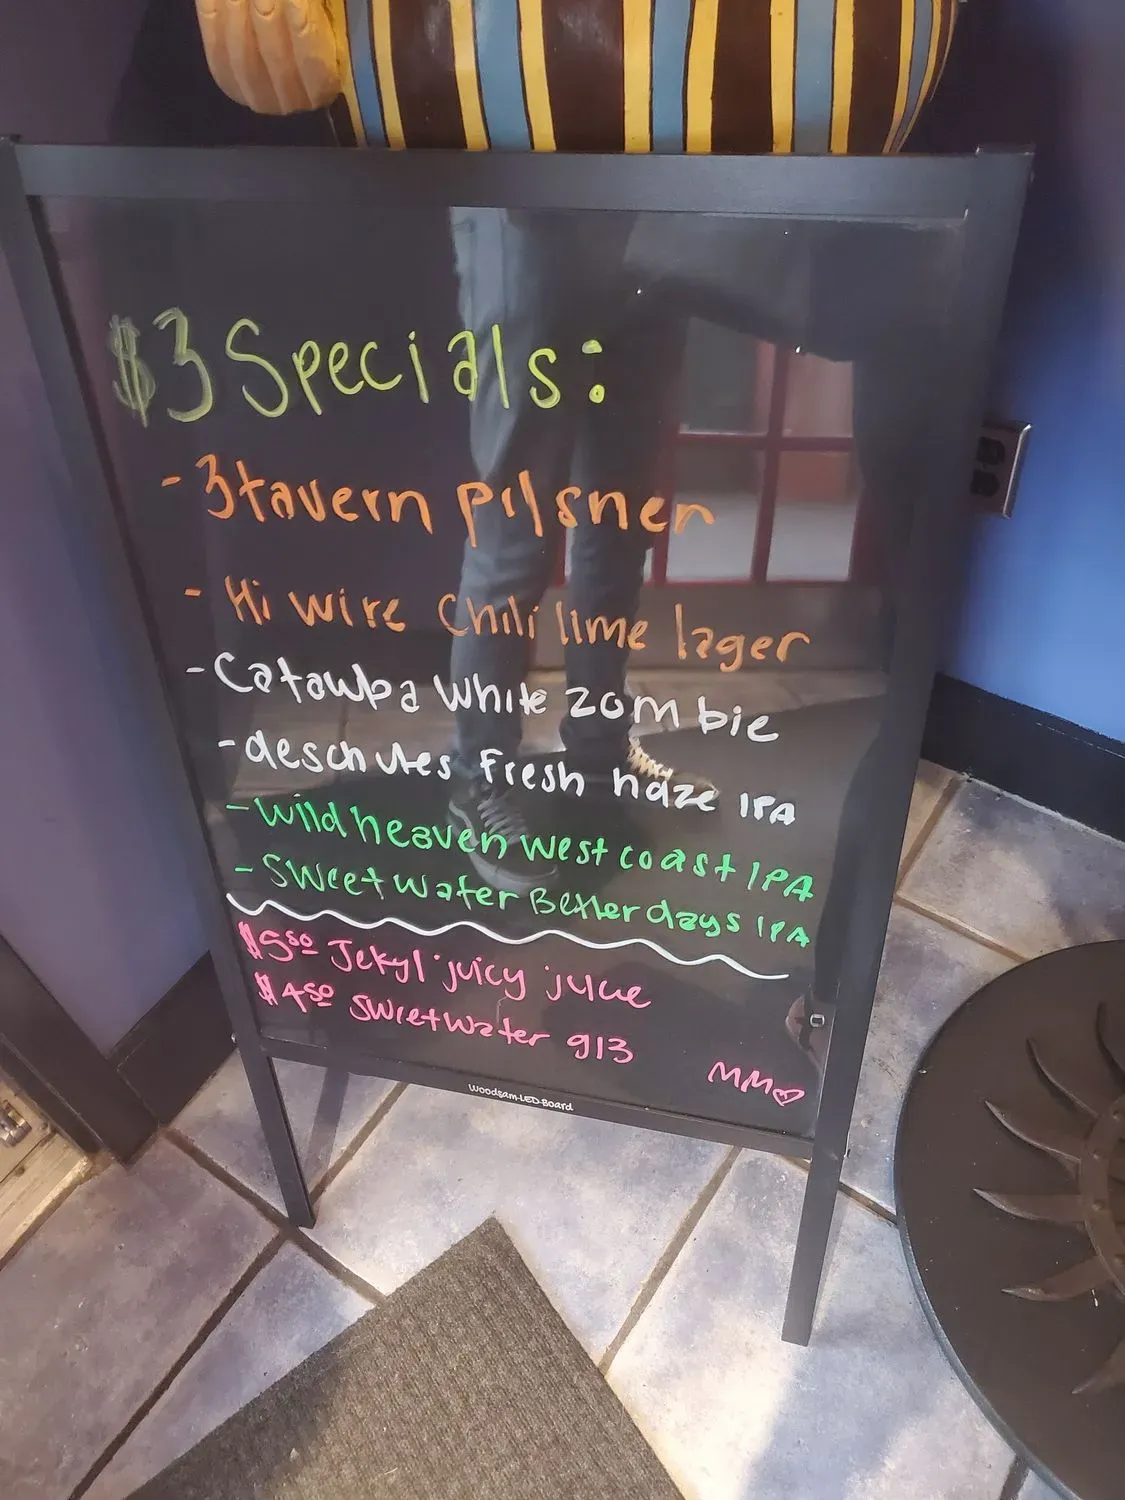 $3 Specials:
- 3tavern pilsner
- Hi wire Chili lime lager
- Catawba White zombie
- deschutes Fresh haze IPA
- Wild heaven west coast IPA
- Sweetwater Better days IPA
$5.50 Jekyl juicy juice
$4.50 Sweetwater 913
MM♡
Woodsam-LED-Board